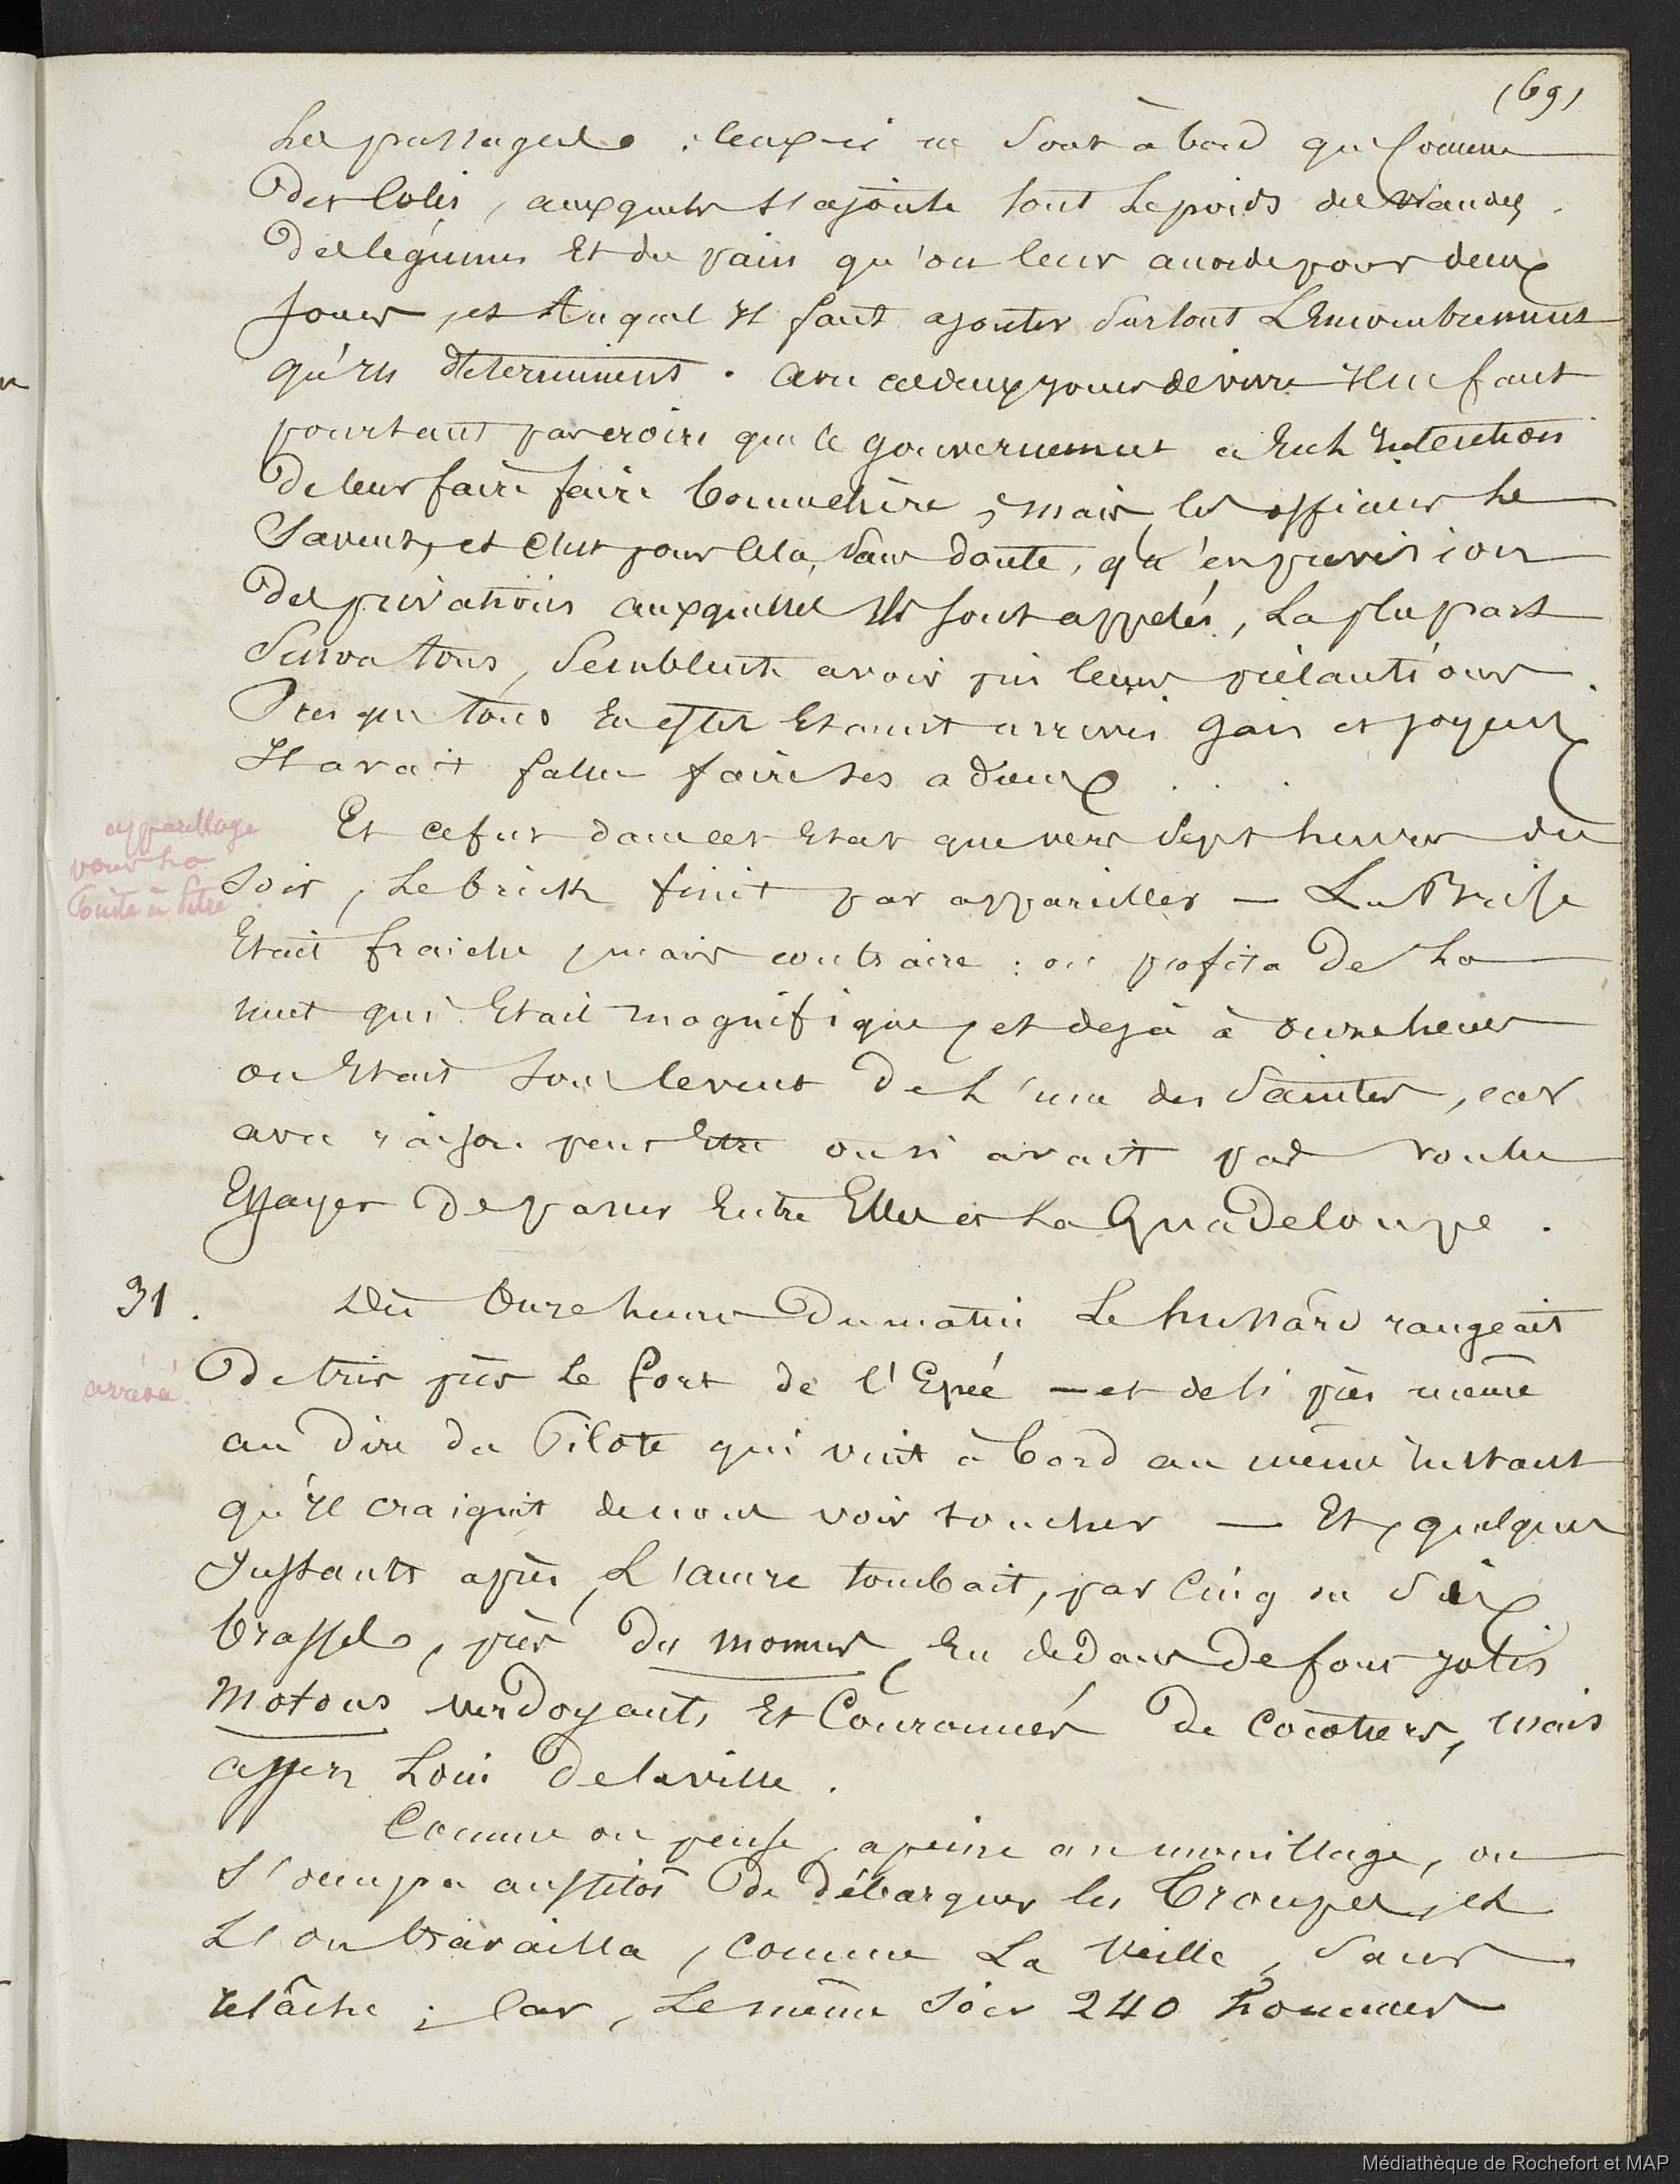 (69)
Les passagers ; ceux-ci ne sont à bord que comme
des colis, auxquels s'ajoute tout le poids des viandes,
des légumes et du pain qu'on leur accorde pour deux
jours, et auquel il faut ajouter surtout l'encombrement
qu'ils déterminent. Avec ces deux jours de vivre il ne faut
pourtant pas croire que le gouvernement a eu l'intention
de leur faire faire bonne chère, mais les officiers le
savent, et c'est pour cela, sans doute, qu'en prévision
des privations auxquelles ils sont appelés, la plupart
sinon tous, semblent avoir pris leurs précautions.
Presque tous en effet étaient arrivés gais et joyeux
Il avait fallu faire ses adieux . . .
appareillage
pour la
Pointe à Pitre.
Et ce fut dans cet état que vers sept heures du
soir, le brick finit par appareiller — La Brise
était fraiche, mais contraire : on profita de la
nuit qui était magnifique, et déjà à onze heures
on était sous le vent de l'une des Saintes, car
avec raison peut être on n'avait pas voulu
Essayer de passer entre Elles et la Guadeloupe.
31.
Dès onze heures du matin Le hussard rangeait
arrivée.
de très près le fort de l'Epée — et de si près même
au dire du Pilote qui vint à bord au même instant
qu'il craignit de nous voir toucher — Et, quelques
Instants après, L'ancre tombait, par cinq ou six
brasses, près du mouus, en dedans de forts jolis
motous verdoyants et couronnés de cocotiers, mais
assez loin de la ville.
Comme on pense, a peine au mouillage, on
s'occupa aussitôt de débarquer les troupes, et
L'on travailla, comme La veille, sans
relâche ; car, Le même soir 240 hommes
Médiathèque de Rochefort et MAP